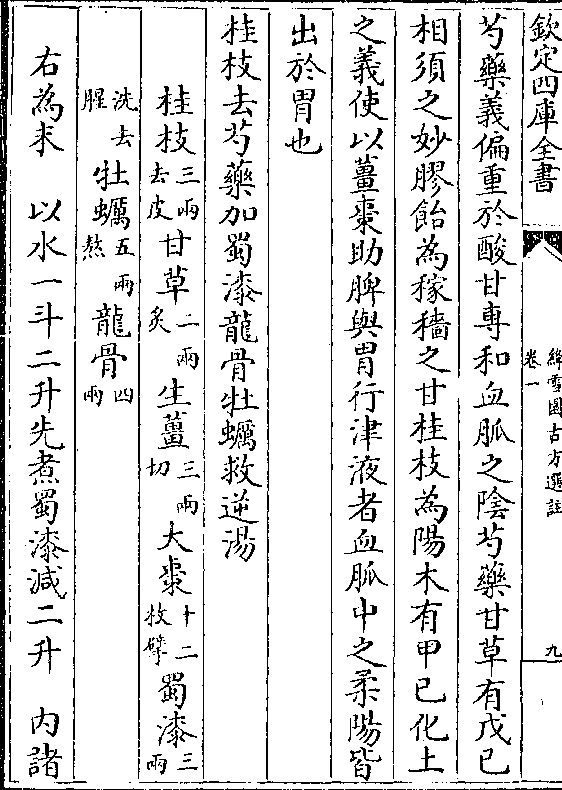 欽定四庫全書
絳雪園古方選註
卷一
九
芍藥義偏重於酸甘專和血脈之陰芍藥甘草有戊己
相須之妙膠飴為稼穡之甘桂枝為陽木有甲己化土
之義使以薑棗助脾與胃行津液者血脈中之柔陽皆
出於胃也
桂枝去芍藥加蜀漆龍骨牡蠣救逆湯
桂枝三兩去皮甘草二兩炙生薑三兩切大棗十二枚擘蜀漆三兩
洗去腥牡蠣五兩熬龍骨四兩
右為末 以水一斗二升先煮蜀漆減二升 內諸